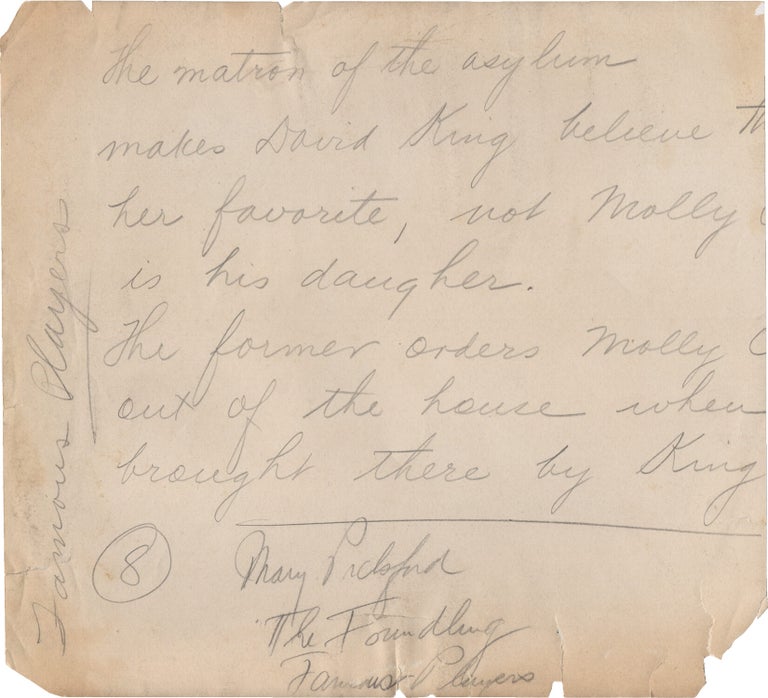 The matron of the asylum
makes David King believe th
her favorite, not Molly
is his daugher.
The former orders Molly
out of the house when
brought there by King
8
Mary Pickford
The Foundling
Famous Players
Famous Players